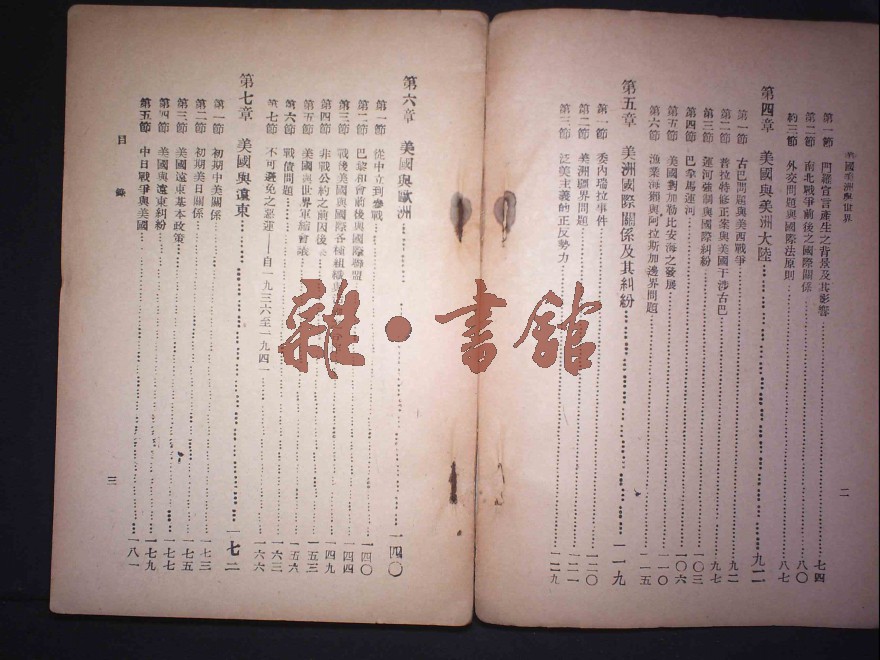 美國美洲與世界
二
第一節 門羅宣言產生之背景及其影響……七四
第二節 南北戰爭前後之國際關係……八〇
第三節 外交問題與國際法原則……八七
第四章 美國與美洲大陸……九二
第一節 古巴問題與美西戰爭……九二
第二節 普拉特修正案與美國干涉古巴……九七
第三節 運河強制與國際糾紛……一〇三
第四節 巴拿馬運河……一〇六
第五節 美國對加勒比安海之發展……一一〇
第六節 漁業海獺與阿拉斯加邊界問題……一一五
第五章 美洲國際關係及其糾紛……一一九
第一節 委內瑞拉事件……一二〇
第二節 美洲疆界問題……一二一
第三節 泛美主義的正反勢力……一二九
第六章 美國與歐洲……一四〇
第一節 從中立到參戰……一四〇
第二節 巴黎和會前後與國際聯盟……一四四
第三節 戰後美國與國際各種組織
第四節 非戰公約之前因後……一四九
第五節 美國與世界軍縮會議……一五三
第六節 戰債問題……一五六
第七節 不可避免之惡運——自一九三六至一九四一……一六三
第七章 美國與遠東……一七二
第一節 初期中美關係……一七三
第二節 初期美日關係……一七五
第三節 美國遠東基本政策……一七七
第四節 美國與遠東糾紛……一七九
第五節 中日戰爭與美國……一八一
目錄
三
雜·書館